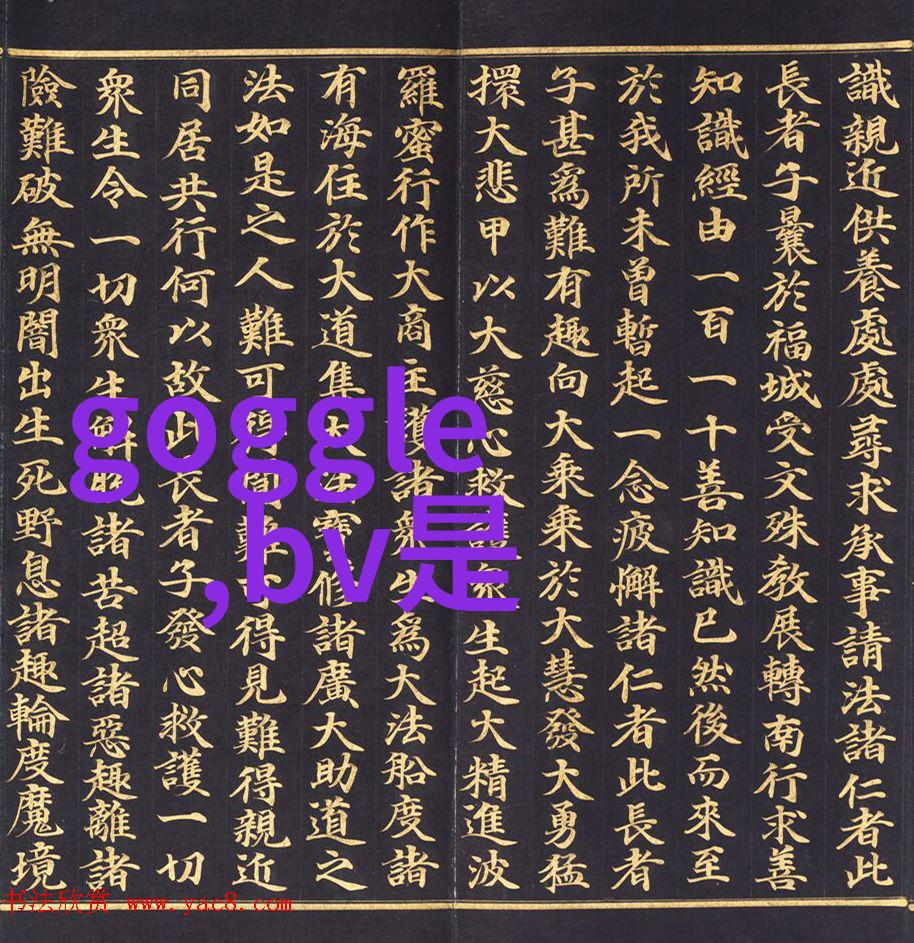 識親近供養處處尋求承事請法諸仁者此
長者子曩於福城受文殊教展轉南行求善
知識經由一百一十善知識已然後而來至
於我所未曾暫起一念疲懈諸仁者此長者
子甚為難有趣向大乘乘於大慧發大勇猛
擐大悲甲以大慈心救護眾生起大精進波
羅蜜行作大商主護諸眾生為大法船度諸
有海住於大道集大法寶修諸廣大助道之
法如是之人難可得聞難可得見難得親近
同居共行何以故此長者子發心救護一切
眾生令一切眾生解脫諸苦超諸惡趣離諸
險難破無明闇出生死野息諸趣輪度魔境
goggle
,bv是
书法欣赏 www.yac8.com